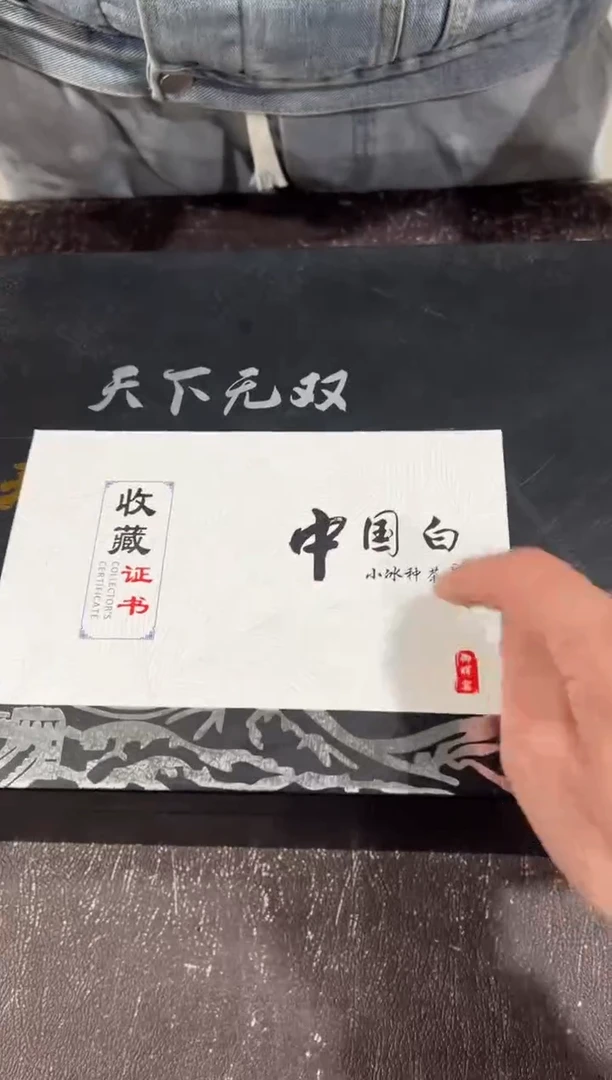 天下无双
收藏证书
COLLECTOR'S
CERTIFICATE
中国白
小冰种